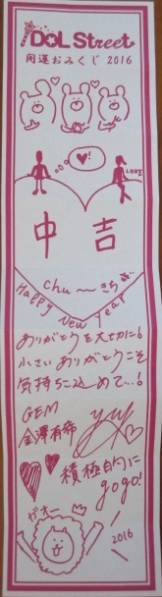 iDOL Street
開運おみくじ 2016
中吉
chu〜きちぉ
Happy New Year
ありがとうを大切に!
小さいありがとうこそ
気持ち込めて…!
GEM
金澤有希
積極的に
gogo!
ガオー
2016